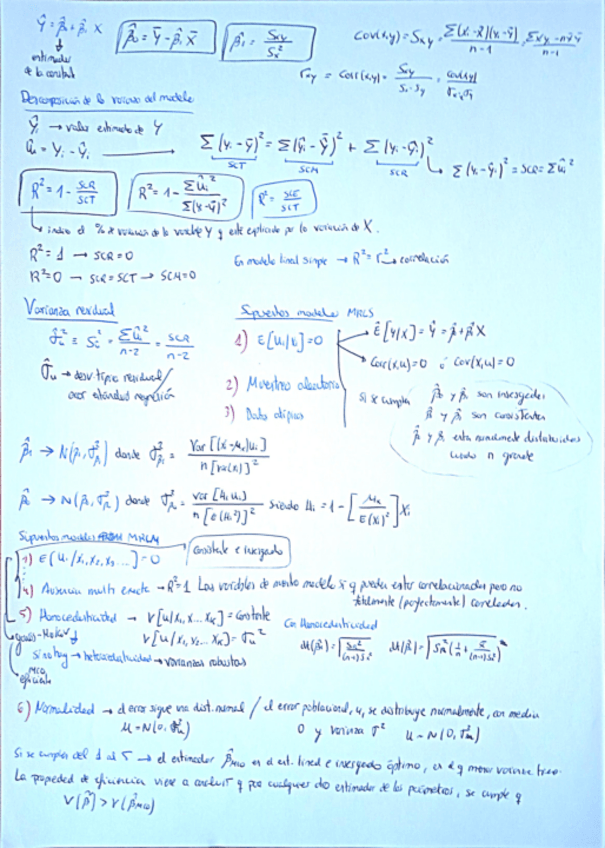 Ŷ = β̂₀ + β̂₁ X
β̂₀ = Ȳ - β̂₁ X̄
β̂₁ = Sxy / Sx²
Cov(x,y) = Sxy = Σ(xᵢ-x̄)(yᵢ-ȳ) / n-1 = Σxᵢyᵢ - nx̄ȳ / n-1
estimador
de la
rxy = Corr(x,y) = Sxy / Sx·Sy = cov(x,y) / σx·σy
Descomposición de la varianza del modelo
Ŷᵢ → valor estimado de Y
ûᵢ = Yᵢ - Ŷᵢ → Σ(yᵢ-ȳ)² = Σ(ŷᵢ-ȳ)² + Σ(yᵢ-ŷᵢ)²
SCT SCM SCR
Σ(yᵢ-ŷᵢ)² = SCR = Σûᵢ²
R² = 1 - SCR/SCT
R² = 1 - Σûᵢ² / Σ(yᵢ-ȳ)²
R² = SCE/SCT
indica el % de variación de la variable Y q esté explicado por la variación de X.
R² = 1 → SCR = 0
En modelo lineal simple → R² = r² → correlación
R² = 0 → SCR = SCT → SCM = 0
Varianza residual
Supuestos modelo MRLS
σ̂u² = Sû² = Σûᵢ² / n-2 = SCR / n-2
1) E[uᵢ/xᵢ] = 0
Ê[Y/X] = Ŷ = β̂₀ + β̂₁X
Corr(x,u) = 0 ó Cov(x,u) = 0
σ̂u → desv. típica residual /
error estándar regresión
2) Muestreo aleatorio
3) Datos atípicos
Si se cumplen
β̂₀ y β̂₁ son insesgados
β̂₀ y β̂₁ son consistentes
β̂₀ y β̂₁ están normalmente distribuidos
cuando n grande
β̂₁ → N(β₁, σ²β̂₁) donde σ²β̂₁ = Var[(xᵢ-μx)uᵢ] / n[var(xᵢ)]²
β̂₀ → N(β₀, σ²β̂₀) donde σ²β̂₀ = var[Hᵢuᵢ] / n[E(Hᵢ²)]² siendo Hᵢ = 1 - [μx / E(xᵢ)²] Xᵢ
Supuestos modelo MRLM
1) E(uᵢ/x₁, x₂, x₃ ...) = 0
Consistente e insesgado
4) Ausencia multi exacta → R² = 1 Las variables de mismo modelo si q pueden estar correlacionadas pero no
totalmente (perfectamente) correladas.
5) Homocedasticidad → V[u/x₁, x₂... xk] = constante
V[u/x₁, x₂... xk] = σu²
Con Homocedasticidad
Gauss-Markov
si no hay → heterocedasticidad → varianzas robustas
MCO
eficiente
6) Normalidad → el error sigue una dist. normal / el error poblacional, u, se distribuye normalmente, con media
u ~ N(0, σu²) 0 y varianza σ² u ~ N(0, σu²)
Si se cumplen del 1 al 5 → el estimador β̂MCO es el est. lineal e insesgado óptimo, es d q menor varianza tiene.
La propiedad de eficiencia viene a q para cualquier otro estimador de los parámetros, se cumple q
V(β̃) > V(β̂MCO)